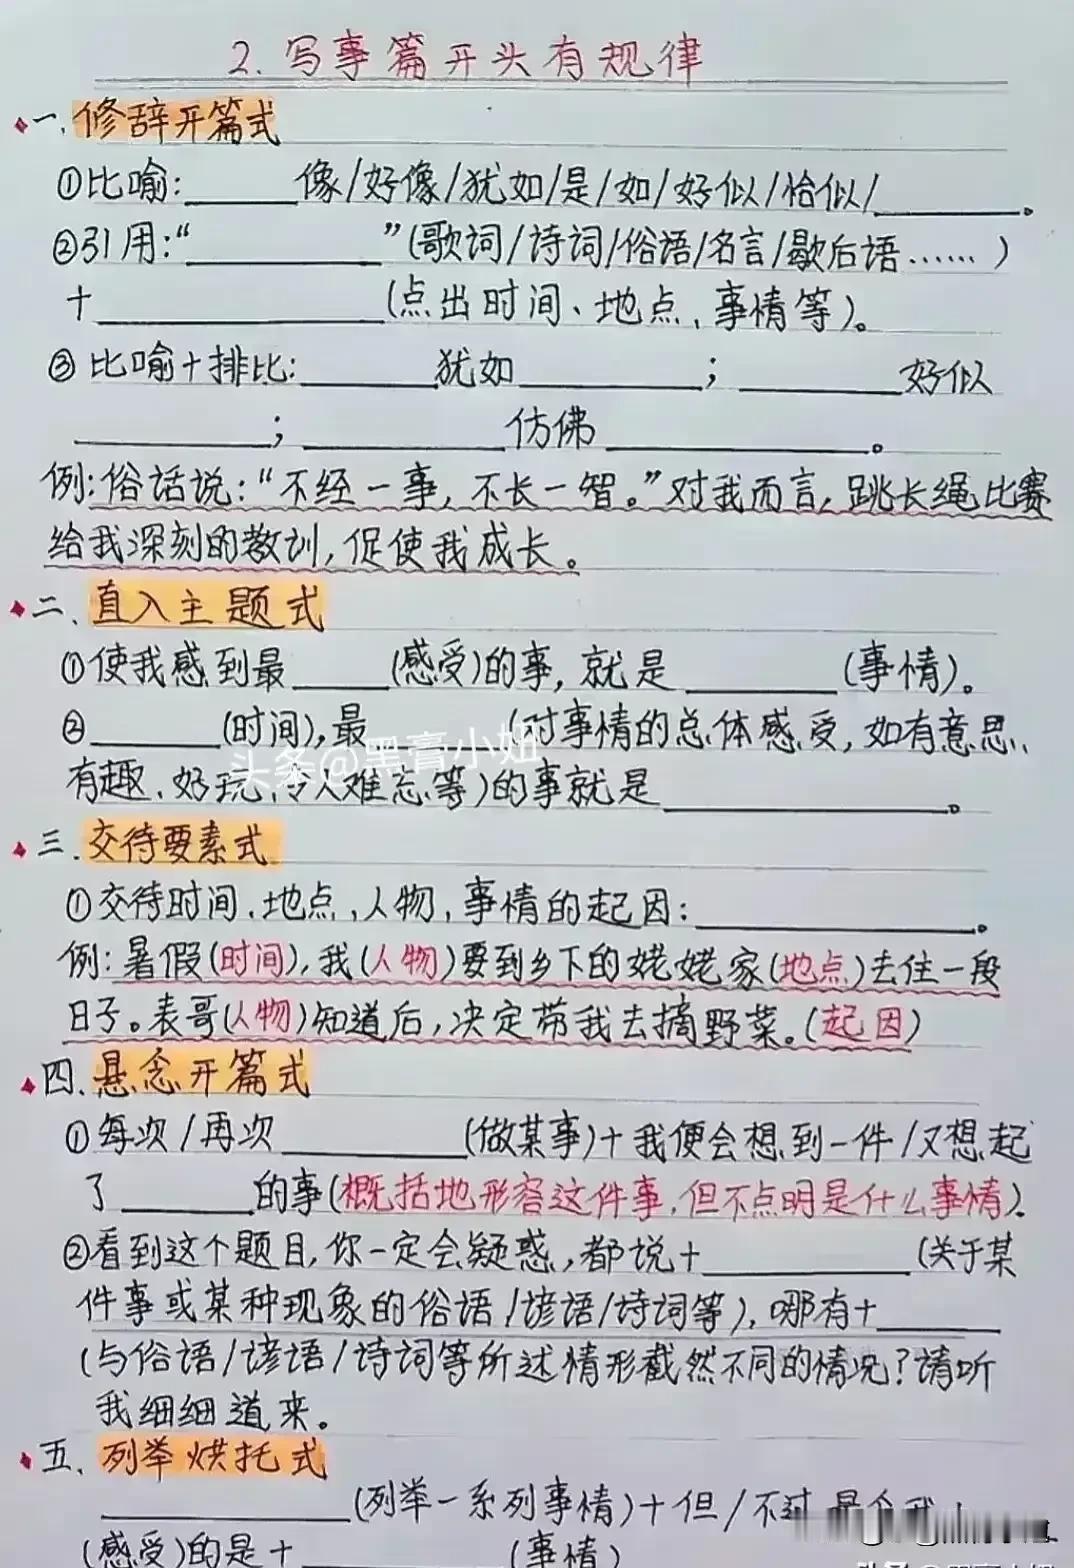 2. 写事篇开头有规律
一、修辞开篇式
①比喻:______像/好像/犹如/是/如/好似/恰似/________。
②引用:“__________”(歌词/诗词/俗语/名言/歇后语……)
+______________(点出时间、地点、事情等)。
③比喻+排比:_______犹如_________;________好似
__________;__________仿佛_____________。
例:俗话说:“不经一事,不长一智。”对我而言,跳长绳比赛
给我深刻的教训,促使我成长。
二、直入主题式
①使我感到最_____(感受)的事,就是_______(事情)。
②______(时间),最______(对事情的总体感受,如有意思、
有趣、好玩、令人难忘等)的事就是______________。
头条@黑膏小妞
三、交待要素式
①交待时间、地点、人物、事情的起因:______________。
例:暑假(时间),我(人物)要到乡下的姥姥家(地点)去住一段
日子。表哥(人物)知道后,决定带我去摘野菜。(起因)
四、悬念开篇式
①每次/再次_________(做某事)+我便会想到一件/又想起
了______的事(概括地形容这件事,但不点明是什么事情)。
②看到这个题目,你一定会疑惑,都说+__________(关于某
件事或某种现象的俗语/谚语/诗词等),哪有+______
(与俗语/谚语/诗词等所述情形截然不同的情况?请听
我细细道来。
五、列举烘托式
____________(列举一系列事情)+但/不过,最令我
(感受)的是+__________(事情)